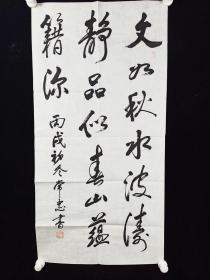 文如秋水波涛
静品似春山蕴
籍深
丙戌初冬常忠书